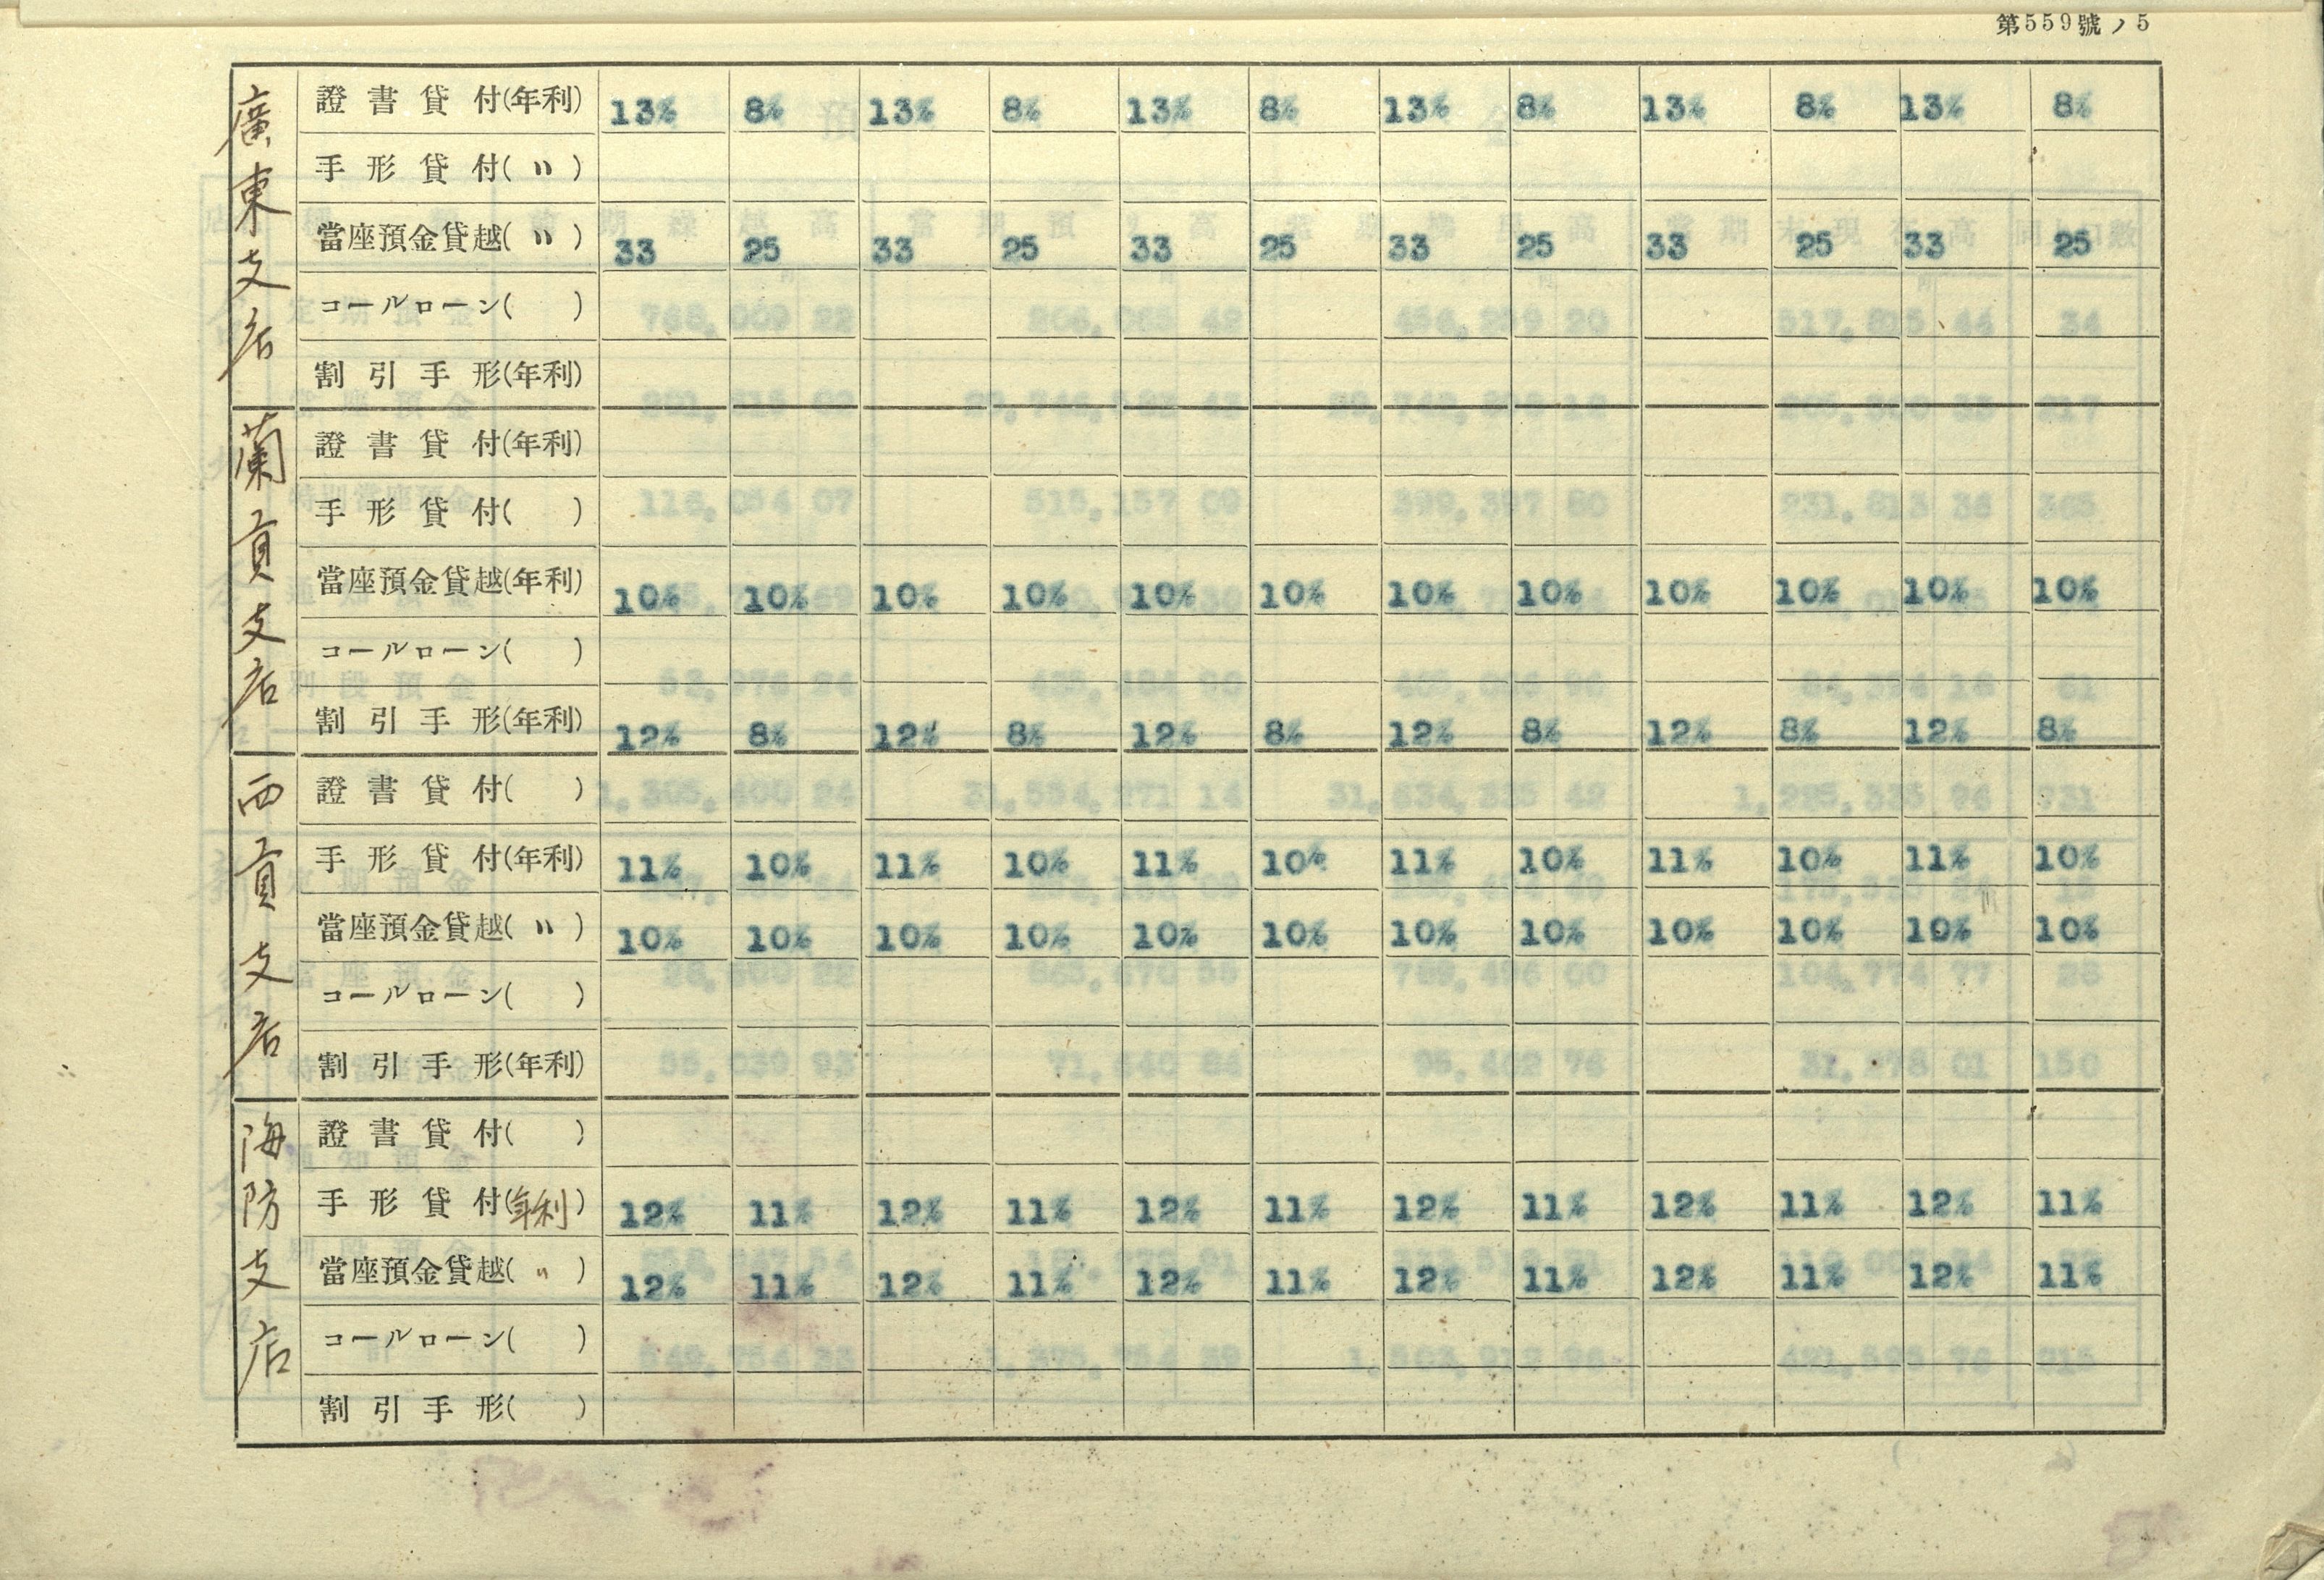 第559號ノ5
廣東支店
證書貸付(年利) 13% 8% 13% 8% 13% 8% 13% 8% 13% 8% 13% 8%
手形貸付( 〃 )
當座預金貸越( 〃 ) 33 25 33 25 33 25 33 25 33 25 33 25
コールローン( )
割引手形(年利)
蘭貢支店
證書貸付(年利)
手形貸付( )
當座預金貸越(年利) 10% 10% 10% 10% 10% 10% 10% 10% 10% 10% 10% 10%
コールローン( )
割引手形(年利) 12% 8% 12% 8% 12% 8% 12% 8% 12% 8% 12% 8%
西貢支店
證書貸付( )
手形貸付(年利) 11% 10% 11% 10% 11% 10% 11% 10% 11% 10% 11% 10%
當座預金貸越( 〃 ) 10% 10% 10% 10% 10% 10% 10% 10% 10% 10% 10% 10%
コールローン( )
割引手形(年利)
海防支店
證書貸付( )
手形貸付(年利) 12% 11% 12% 11% 12% 11% 12% 11% 12% 11% 12% 11%
當座預金貸越( 〃 ) 12% 11% 12% 11% 12% 11% 12% 11% 12% 11% 12% 11%
コールローン( )
割引手形( )